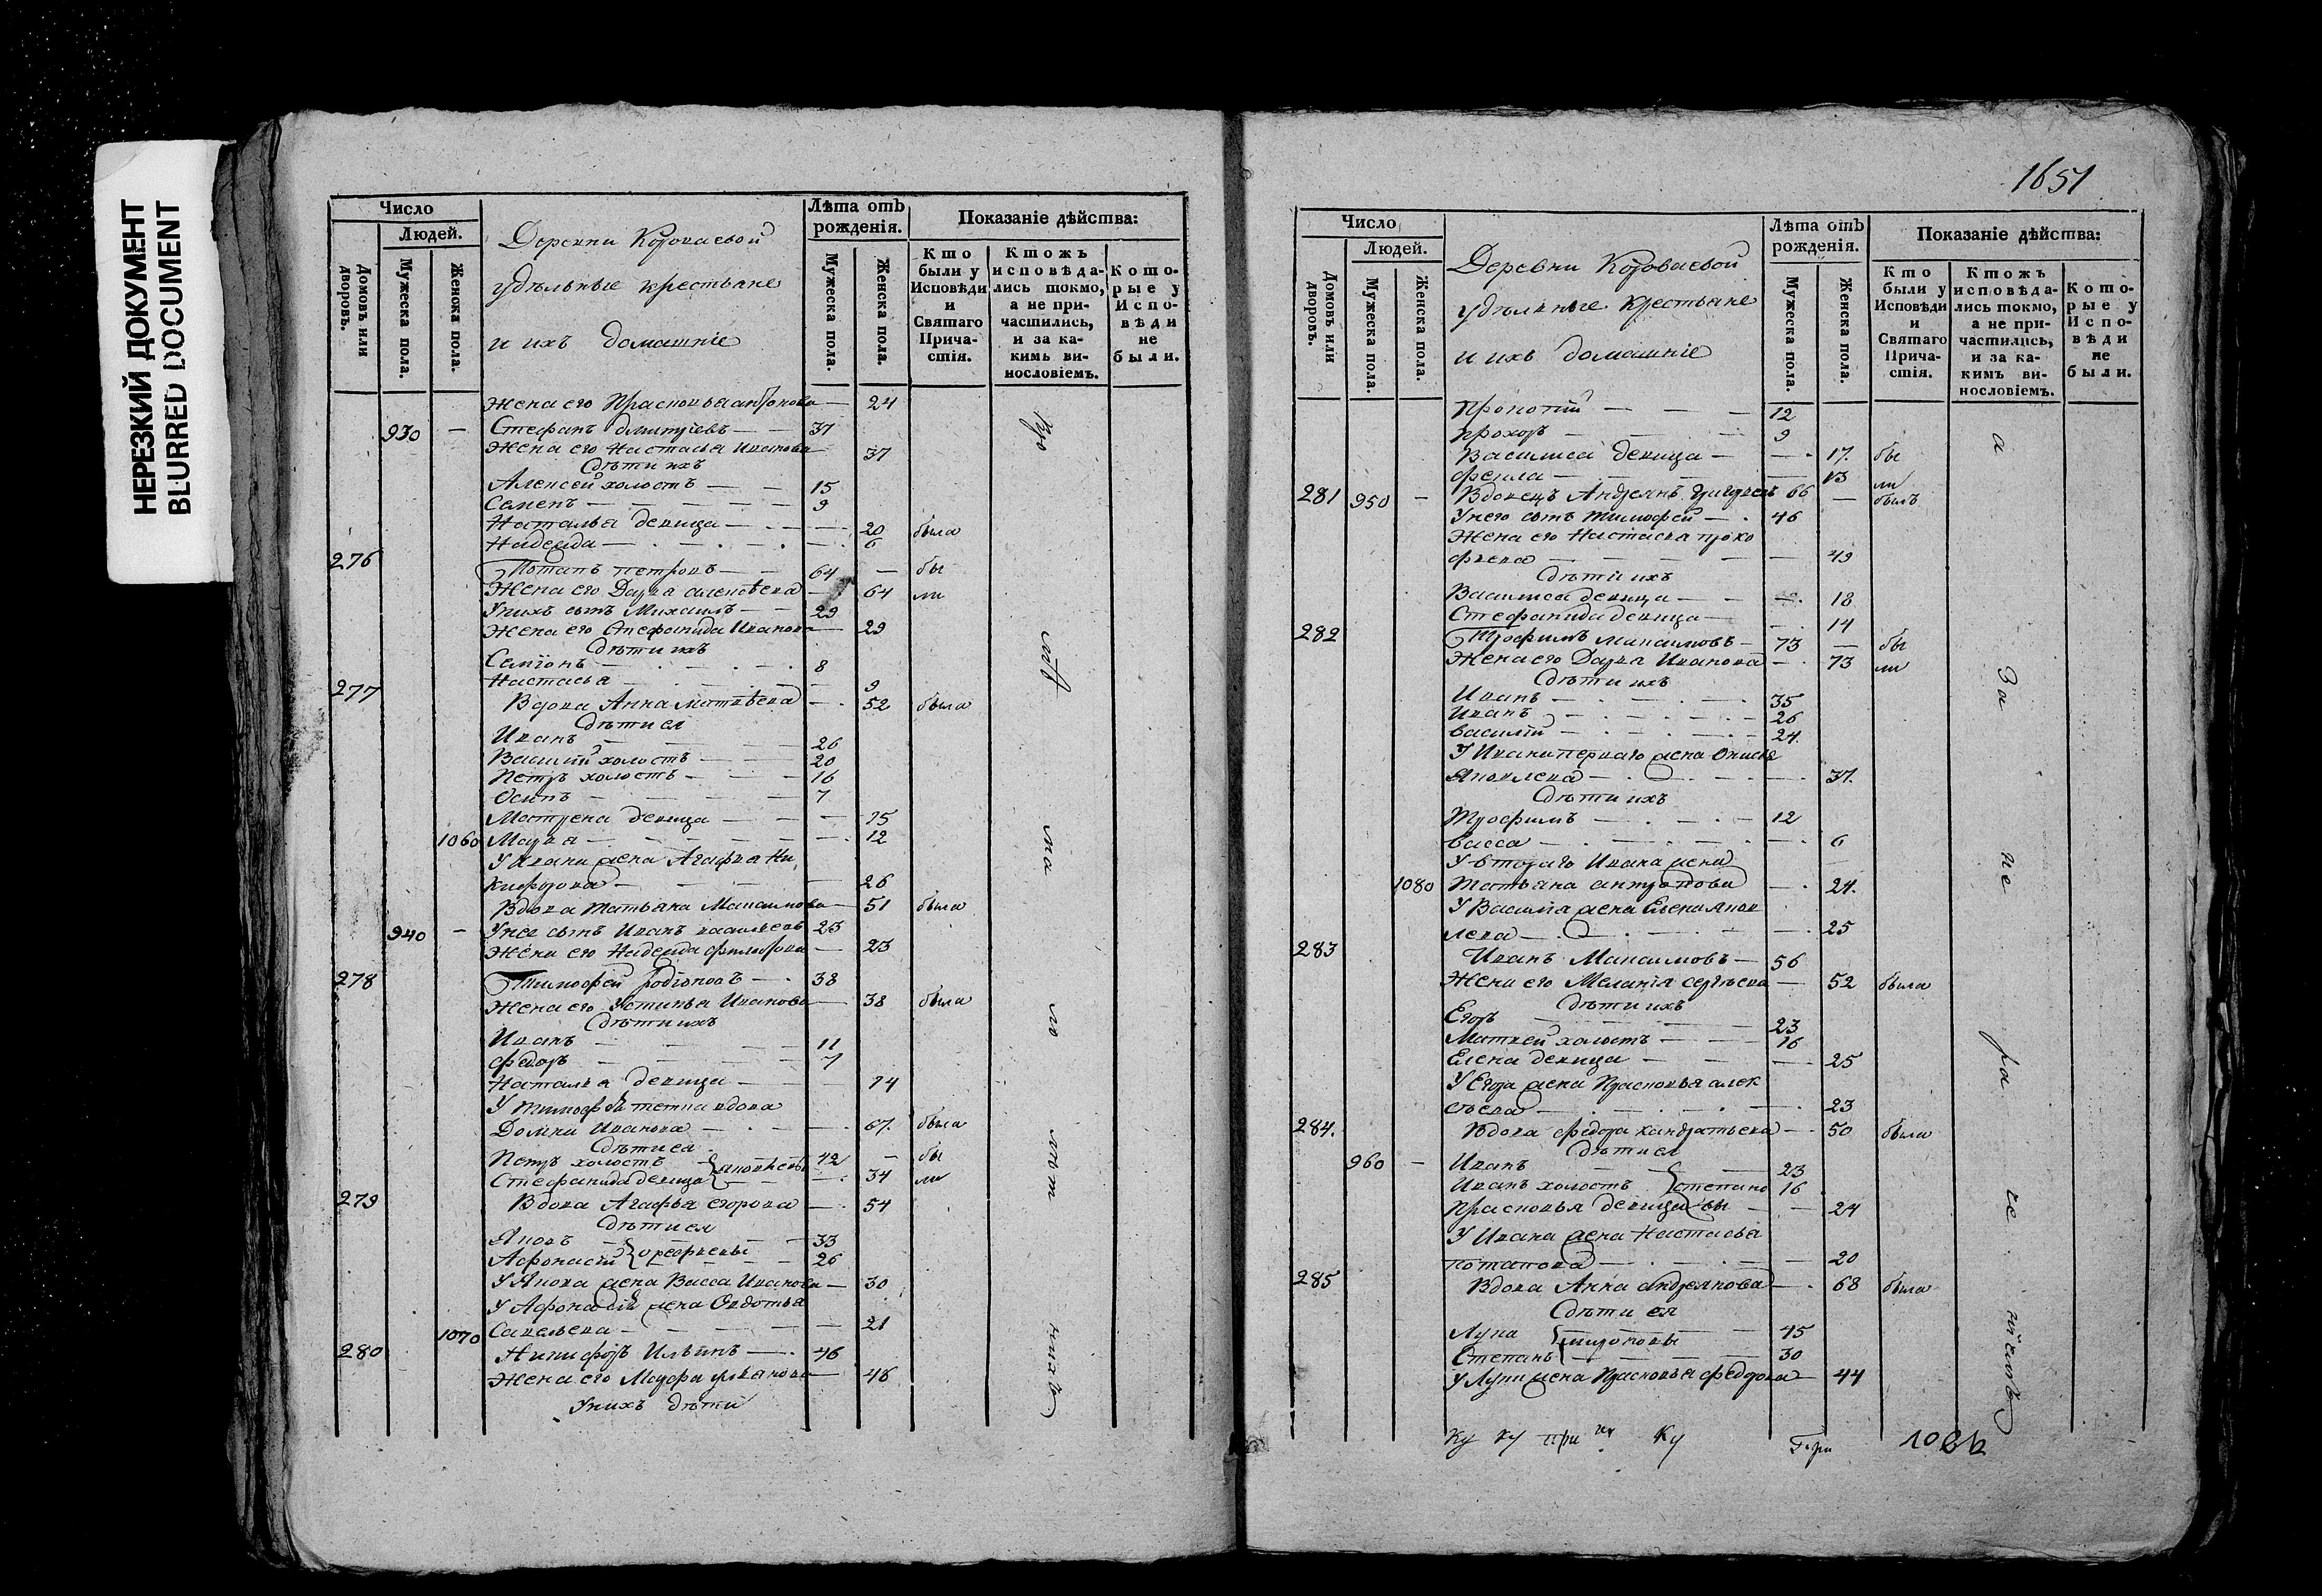 НЕРЕЗКИЙ ДОКУМЕНТ
BLURRED DOCUMENT
Число
Людей.
Домовъ или дворовъ.
Мужеска пола.
Женска пола.
Деревни Короваевой
удѣльные крестьяне
и ихъ домашніе
Лѣта отъ рожденія.
Мужеска пола.
Женска пола.
Показаніе дѣйства:
Кто были у Исповѣди и Святаго Прича- стія.
Ктожъ исповѣда- лись токмо, а не при- частились, и за ка- кимъ ви- нословіемъ.
Кото- рые у Испо- вѣди не были.
Жена его Прасковья — 24
930 — Стефанъ Дмитріевъ — 37
Жена его Настасья Иванова 37
Дѣти ихъ
Алексей холостъ — 15
Семенъ — 9
Наталья девица — 20 была
Надежда — 6
276 Потапъ Петровъ — 64 — бы
Жена его Дарья Алексѣева — 64 ли
У нихъ сынъ Михаилъ — 29
Жена его Стефанида Иванова — 29
Дѣти ихъ
Семіонъ — 8
Настасья — 9
277 Вдова Анна Матвѣева — 52 была
Дѣти ея
Иванъ — 26
Василій холостъ — 20
Петръ холостъ — 16
Осипъ — 7
Матрена девица — 15
1060 Марья — 12
У Ивана жена Агафья Ни
кифорова — 26
Вдова Татьяна Максимова — 51 была
940 — У нее сынъ Иванъ Васильевъ 23
Жена его Надежда — 23
278 Тимофей Родіоновъ — 38
Жена его Устинья Иванова — 38 была
Дѣти ихъ
Иванъ — 11
Федоръ — 7
Наталья девица — 14
У Тимофея тетка вдова
Домна Иванова — 67. была
Дѣти ея
Петръ холостъ } Яковлевы 42 — бы
Стефанида девица — 34 ли
279 Вдова Агафья Егорова — 54
Дѣти ея
Яковъ — 33
Афонасій } — 26
У Якова жена Васса Иванова — 30
У Афонасія жена Овдотья
1070 Савельева — 21
280 Никифоръ Ильинъ — 46
Жена его Марфа Ульянова — 48
У нихъ дѣти
1651
Число
Людей.
Домовъ или дворовъ.
Мужеска пола.
Женска пола.
Деревни Короваевой
удѣльные крестьяне
и ихъ домашніе
Лѣта отъ рожденія.
Мужеска пола.
Женска пола.
Показаніе дѣйства:
Кто были у Исповѣди и Святаго Прича- стія.
Ктожъ исповѣда- лись токмо, а не при- частились, и за ка- кимъ ви- нословіемъ.
Кото- рые у Испо- вѣди не были.
Прокопій — 12
Прохоръ — 9
Василиса девица — 17. бы
Фекла — 13 ли
281 950 — Вдовецъ Андреянъ Григорьевъ 66 — былъ
У него сынъ Тимофей — 46
Жена его Настасья Проко
фьева — 49
Дѣти ихъ
Василиса девица — 18
Стефанида девица — 14
282 Трофимъ Максимовъ — 73 — бы
Жена его Дарья Иванова — 73 ли
Дѣти ихъ
Иванъ — 35
Иванъ — 26
Василій — 24.
У Ивана перваго жена Онисья
Яковлева — 37.
Дѣти ихъ
Трофимъ — 12
Васса — 6
У втораго Ивана жена
1080 Татьяна Антропова — 24.
У Василія жена Елена Яков
лева — 25
283 Иванъ Максимовъ — 56
Жена его Меланія Сергѣева — 52 была
Дѣти ихъ
Егоръ — 23
Матвей холостъ — 16
Елена девица — 25
У Егора жена Прасковья Алек
сѣева — 23
284. Вдова Федора Кондратьева — 50 была
Дѣти ея
960 — Иванъ — 23
Иванъ холостъ } Степано 16
Прасковья девица вы — 24
У Ивана жена Настасья
Потапова — 20
285 Вдова Анна Андреянова — 68 была
Дѣти ея
Лупа } Мироновы — 45
Степанъ — 30
У Лупы жена Прасковья Федорова — 44
за
не
ра
че
ніемъ